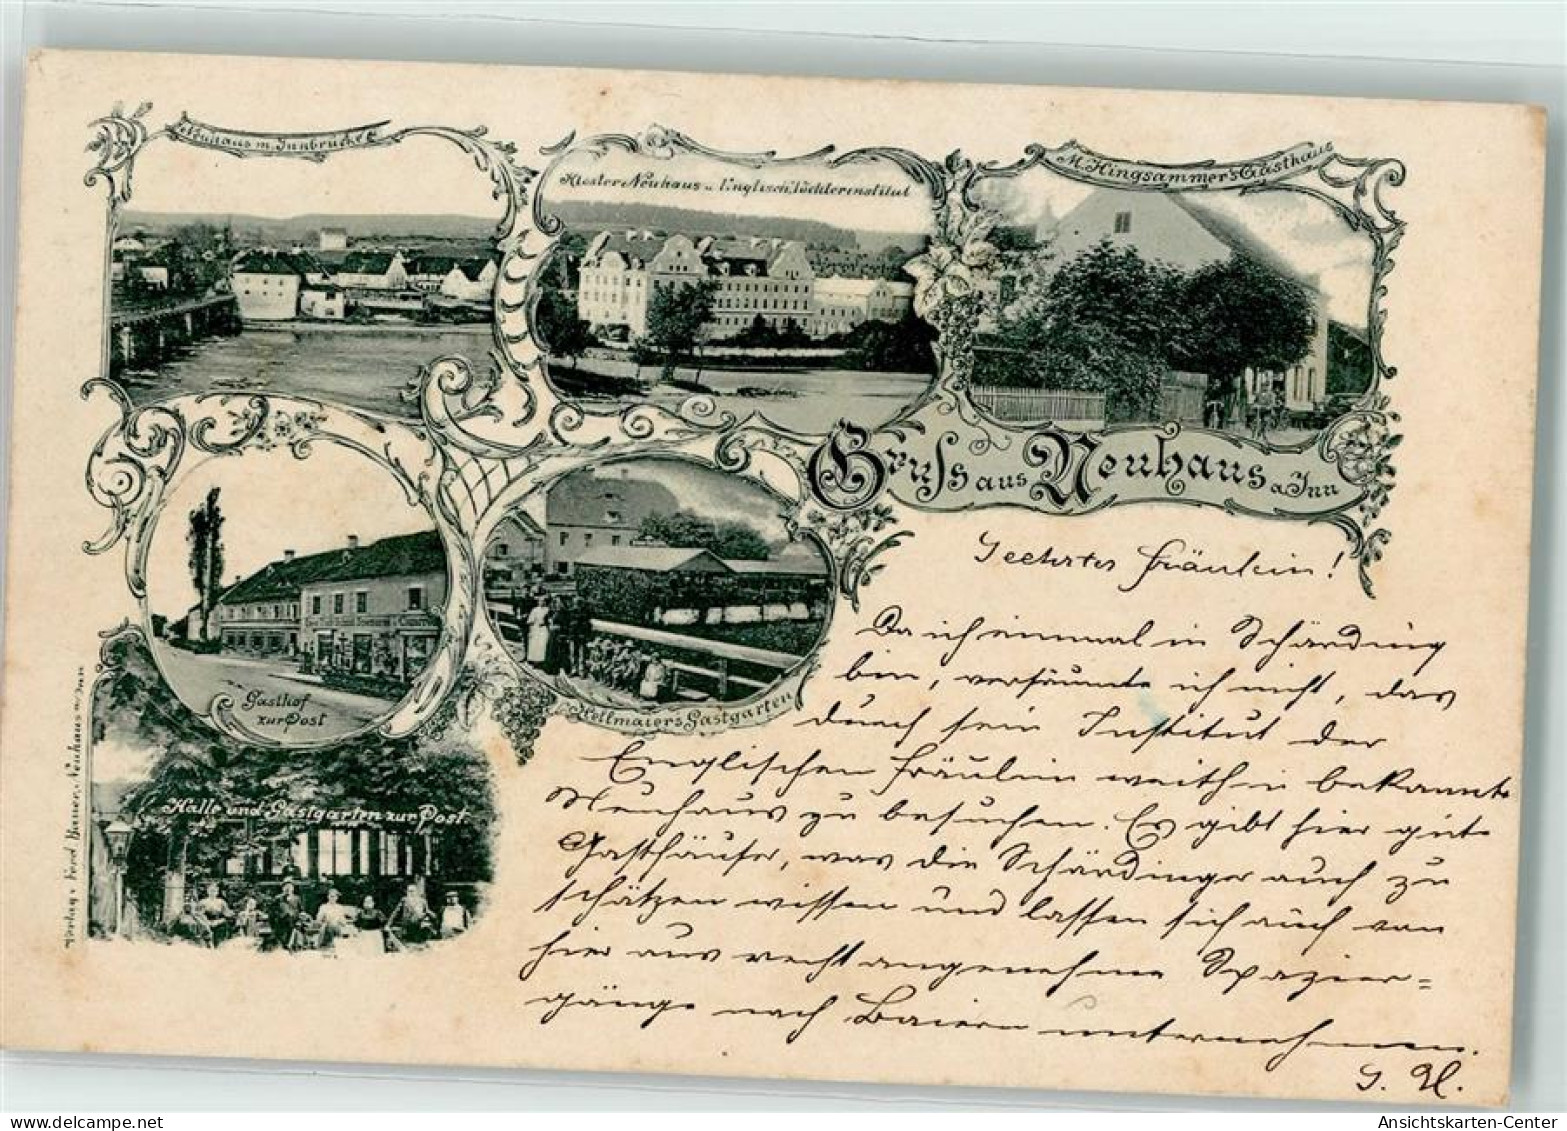 Neuhaus m. Innbrücke
Kloster Neuhaus u. Englisch. Töchterinstitut
M. Hingsammer's Gasthaus
Gruss aus Neuhaus a. Inn
Gasthof
zur Post
Hellmaiers Gastgarten
Halle und Gastgarten zur Post
Verlag v. Ferd. Neuhaus a. Inn
Geehrtes Fräulein!
Da ich einmal in Schärding
bin, versäumte ich nicht, das
durch sein Institut der
Englischen Fräulein weithin bekannte
Neuhaus zu besuchen. Es gibt hier gute
Gasthäuser, was die Schärdinger auch zu
schätzen wissen und lassen sich auch von
hier aus recht angenehme Spazier=
gänge nach Baiern unternehmen.
Ansichtskarten-Center